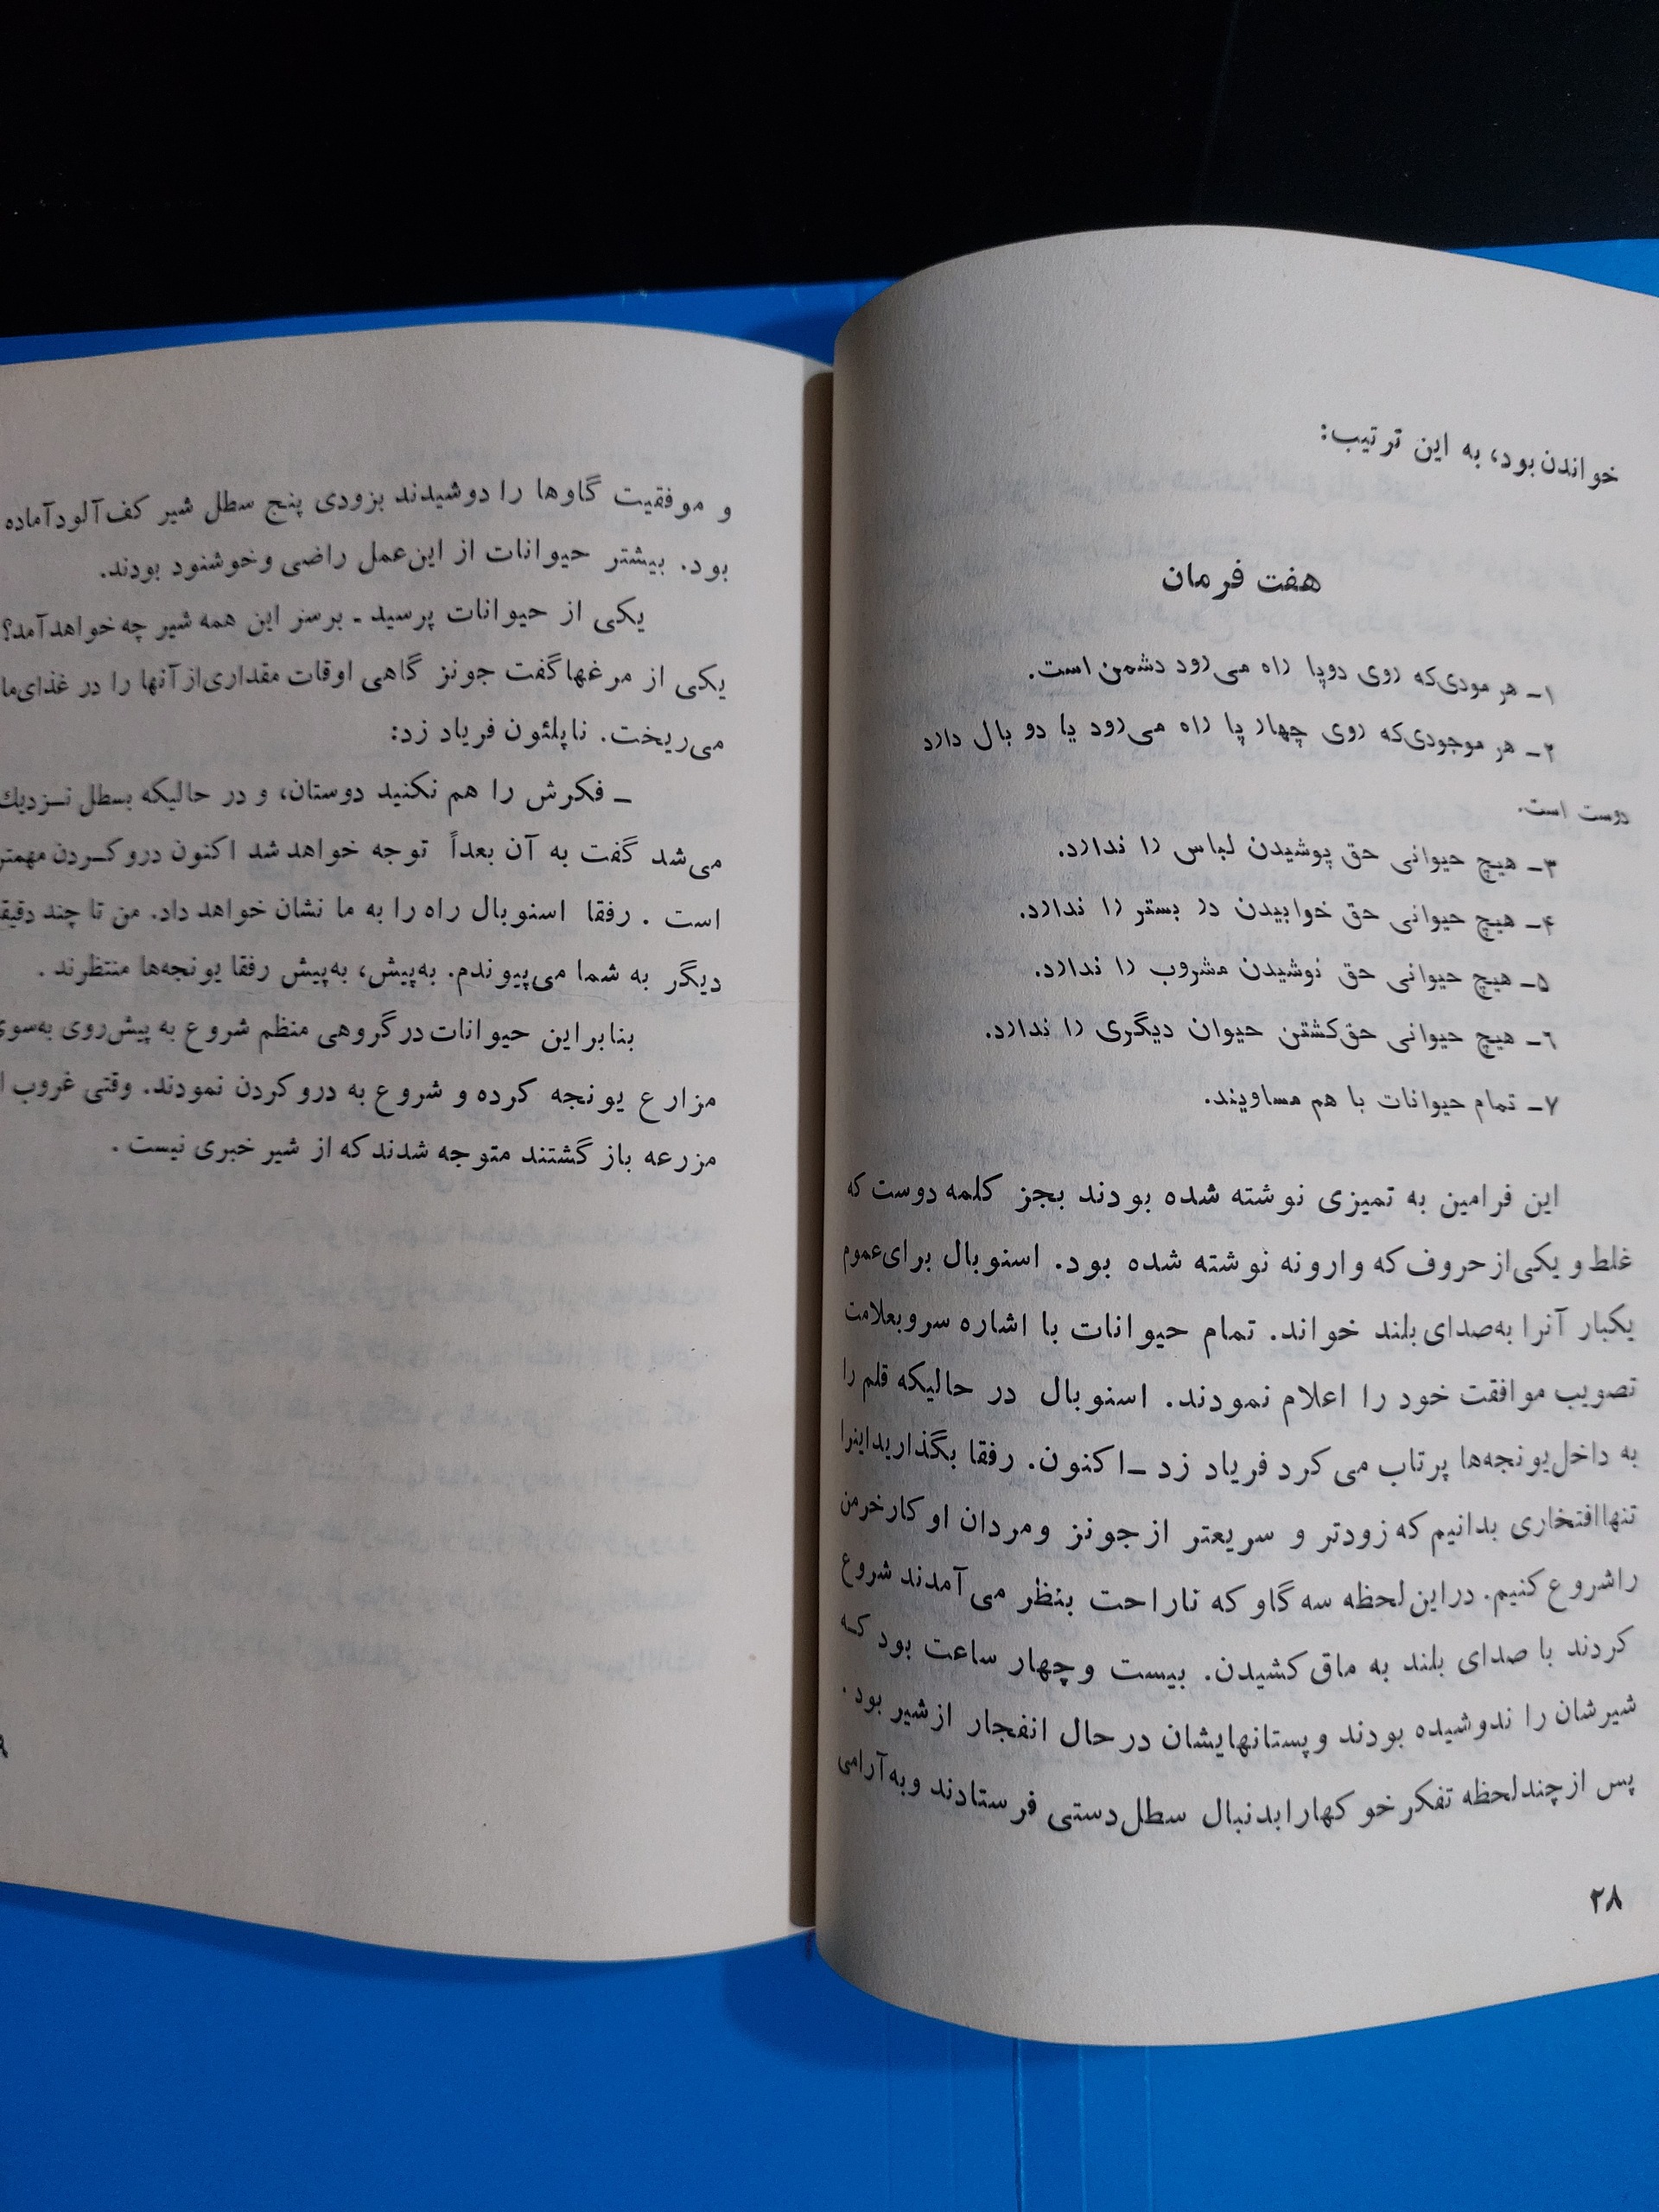 خواندن بود، به این ترتیب:
هفت فرمان
۱ــ هر مودی‌که روی دوپا راه می‌رود دشمن است.
۲ــ هر موجودی‌که روی چهار پا راه می‌رود یا دو بال دارد
دوست است.
۳ــ هیچ حیوانی حق پوشیدن لباس را ندارد.
۴ــ هیچ حیوانی حق خوابیدن در بستر را ندارد.
۵ــ هیچ حیوانی حق نوشیدن مشروب را ندارد.
۶ــ هیچ حیوانی حق‌کشتن حیوان دیگری را ندارد.
۷ــ تمام حیوانات با هم مساویند.
این فرامین به تمیزی نوشته شده بودند بجز کلمه دوست که
غلط و یکی‌از حروف که وارونه نوشته شده بود. اسنوبال برای‌عموم
یکبار آنرا به‌صدای بلند خواند. تمام حیوانات با اشاره سروبعلامت
تصویب موافقت خود را اعلام نمودند. اسنوبال در حالیکه قلم را
به داخل‌یونجه‌ها پرتاب می‌کرد فریاد زد ــ اکنون. رفقا بگذاریداینرا
تنهاافتخاری بدانیم که زودتر و سریعتر از جونز ومردان او کارخرمن
راشروع کنیم. دراین لحظه سه گاو که ناراحت بنظر می‌آمدند شروع
کردند با صدای بلند به ماق کشیدن. بیست وچهار ساعت بود کـه
شیرشان را ندوشیده بودند وپستانهایشان درحال انفجار ازشیر بود.
پس ازچندلحظه تفکر خوکهارابدنبال سطل‌دستی فرستادند وبه‌آرامی
۲۸
و موفقیت گاوها را دوشیدند بزودی پنج سطل شیر کف‌آلودآماده
بود. بیشتر حیوانات از این‌عمل راضی وخوشنود بودند.
یکی از حیوانات پرسید ـ برسز این همه شیر چه خواهدآمد؟
یکی از مرغهاگفت جونز گاهی اوقات مقداری‌ازآنها را در غذای‌ما
می‌ریخت. ناپلئون فریاد زد:
ــ فکرش را هم نکنید دوستان، و در حالیکه بسطل نـزدیك
می‌شد گفت به آن بعداً توجه خواهد شد اکنون دروکـردن مهمتر
است . رفقا اسنوبال راه را به ما نشان خواهد داد. من تا چند
دیگر به شما می‌پیوندم. به‌پیش، به‌پیش رفقا یونجه‌ها منتظرند .
بنابراین حیوانات درگروهی منظم شروع به پیش‌روی به‌سوی
مزارع یونجه کرده و شروع به دروکردن نمودند. وقتی غروب
مزرعه بازگشتند متوجه شدند که از شیر خبری نیست .